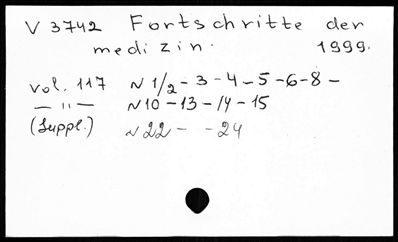 V 3742 Fortschritte der
medizin. 1999.
vol. 117 N 1/2 - 3 - 4 - 5 - 6 - 8 -
— " — N 10 - 13 - 14 - 15
(Suppl.) N 22 - - 24